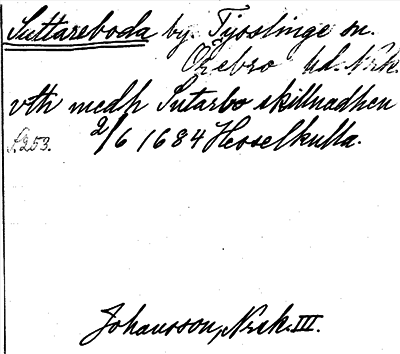 Suttareboda by. Tysslinge sn.
Örebro hd. Nrk.
vth medh Sutarbo skillnadhen
s. 253. 2/6 1684 Hesselkulla.
Johansson, Nrsk. III.